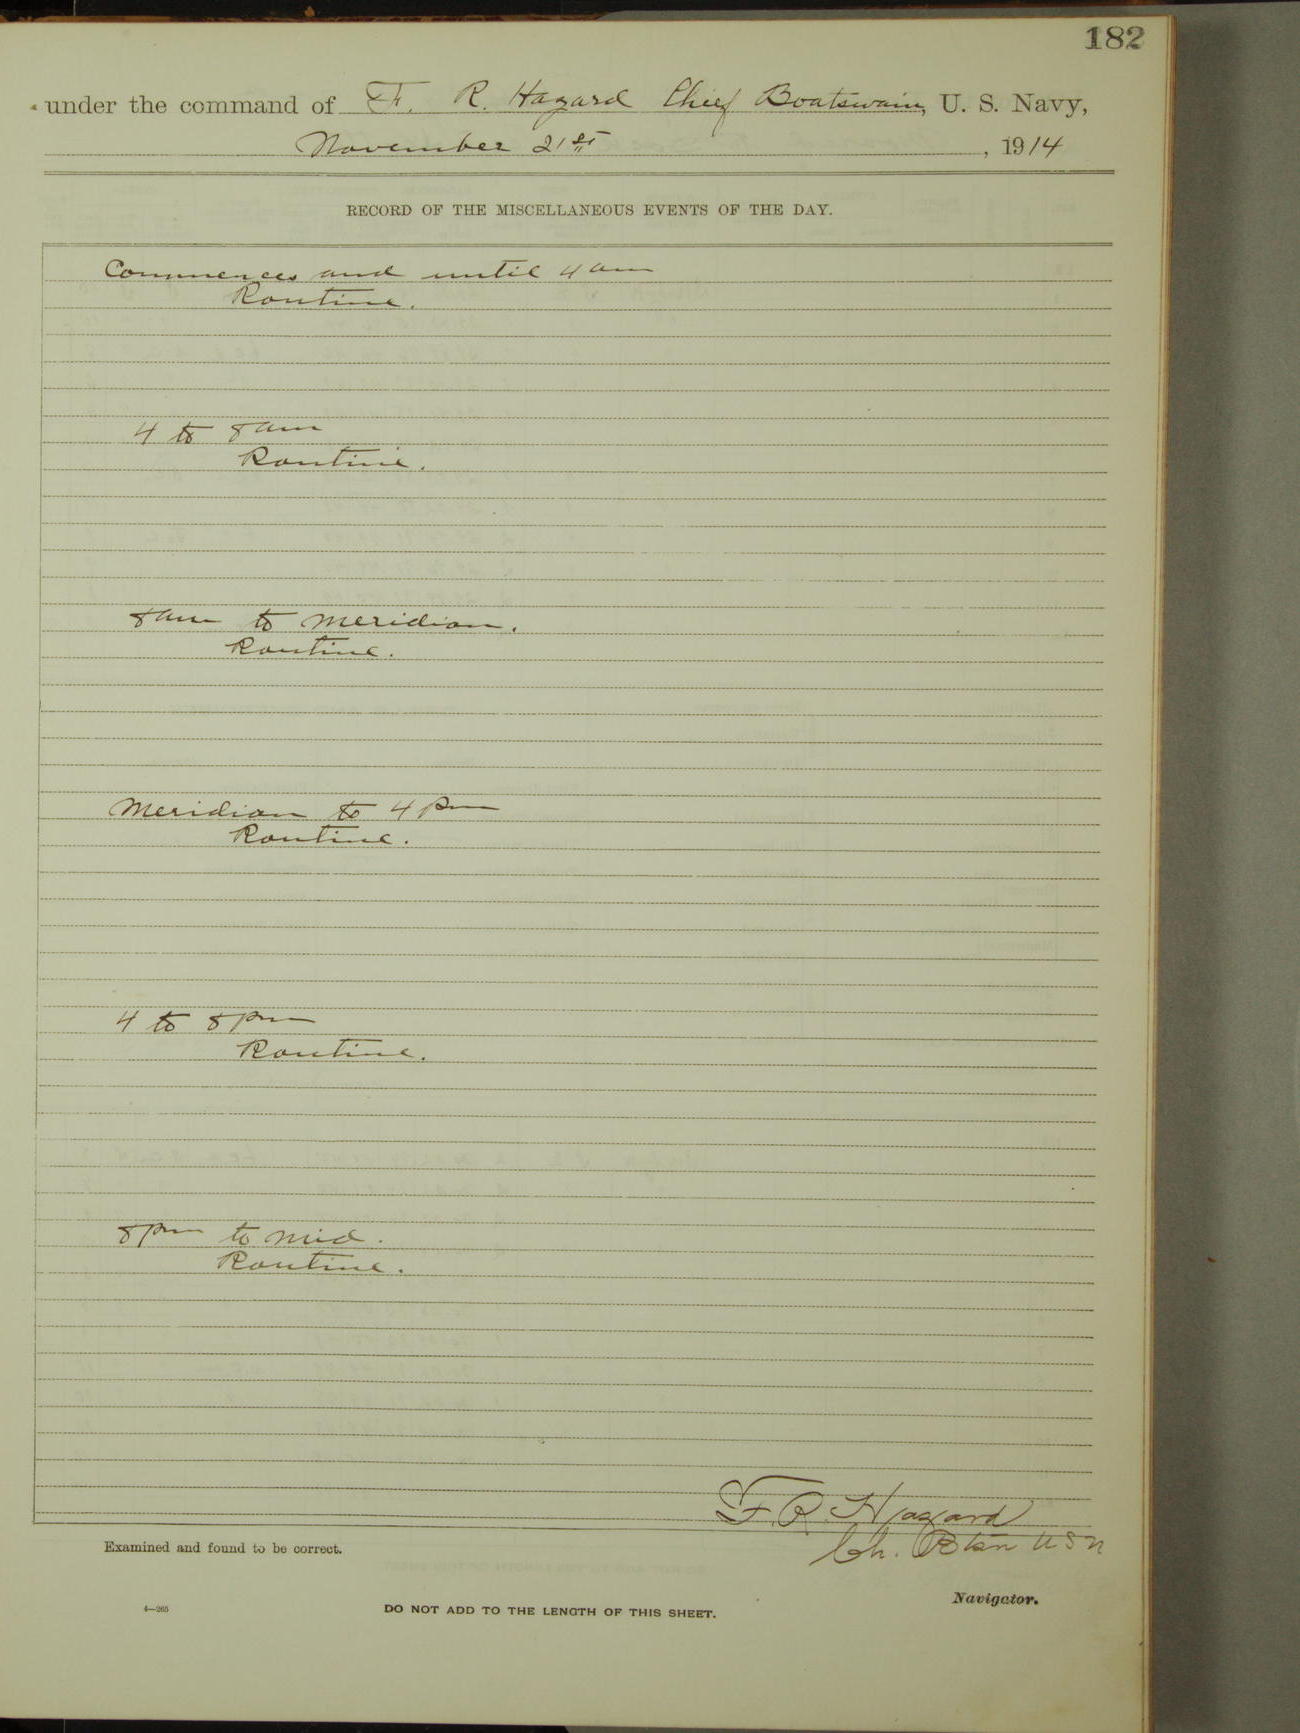 182
under the command of F. R. Hazard Chief Boatswain, U. S. Navy,
November 21st, 1914
RECORD OF THE MISCELLANEOUS EVENTS OF THE DAY.
Commences and until 4 am
Routine.
4 to 8 am
Routine.
8 am to meridian.
Routine.
Meridian to 4 pm
Routine.
4 to 8 pm
Routine.
8 pm to mid.
Routine.
F. R. Hazard
Ch. Btsn U S N
Examined and found to be correct.
Navigator.
4—265
DO NOT ADD TO THE LENGTH OF THIS SHEET.